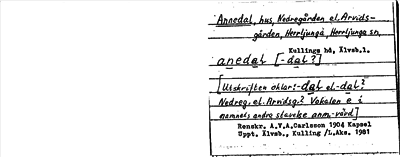 Annedal, hus, Nedregården el. Arvids-
gården, Herrljunga, Herrljunga sn,
Kullings hd, Älvsb.l.
anedal [-dal?]
[Utskriften oklar: -dal el -dal?
Nedreg. el. Arvidsg.? Vokalen e i
namnets andra stavelse anm.-värd]
Renskr. A.V.A.Carlsson 1904 Kapsel
Uppt. Älvsb., Kulling /L.Aks. 1981